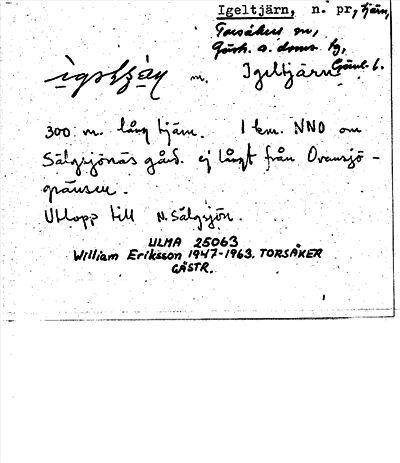 Igeltjärn, n. pr, tjärn,
Torsåkers sn,
Gäst. o. doms. lg,
Gästr. l.
m. Igeltjärn
300 m. lång tjärn. 1 km. NNO om
Sälgsjönäs gård. ej långt från Ovansjö-
gränsen.
Utlopp till N. Sälgsjön.
ULMA 25063
William Eriksson 1947-1963. TORSÅKER
GÄSTR.